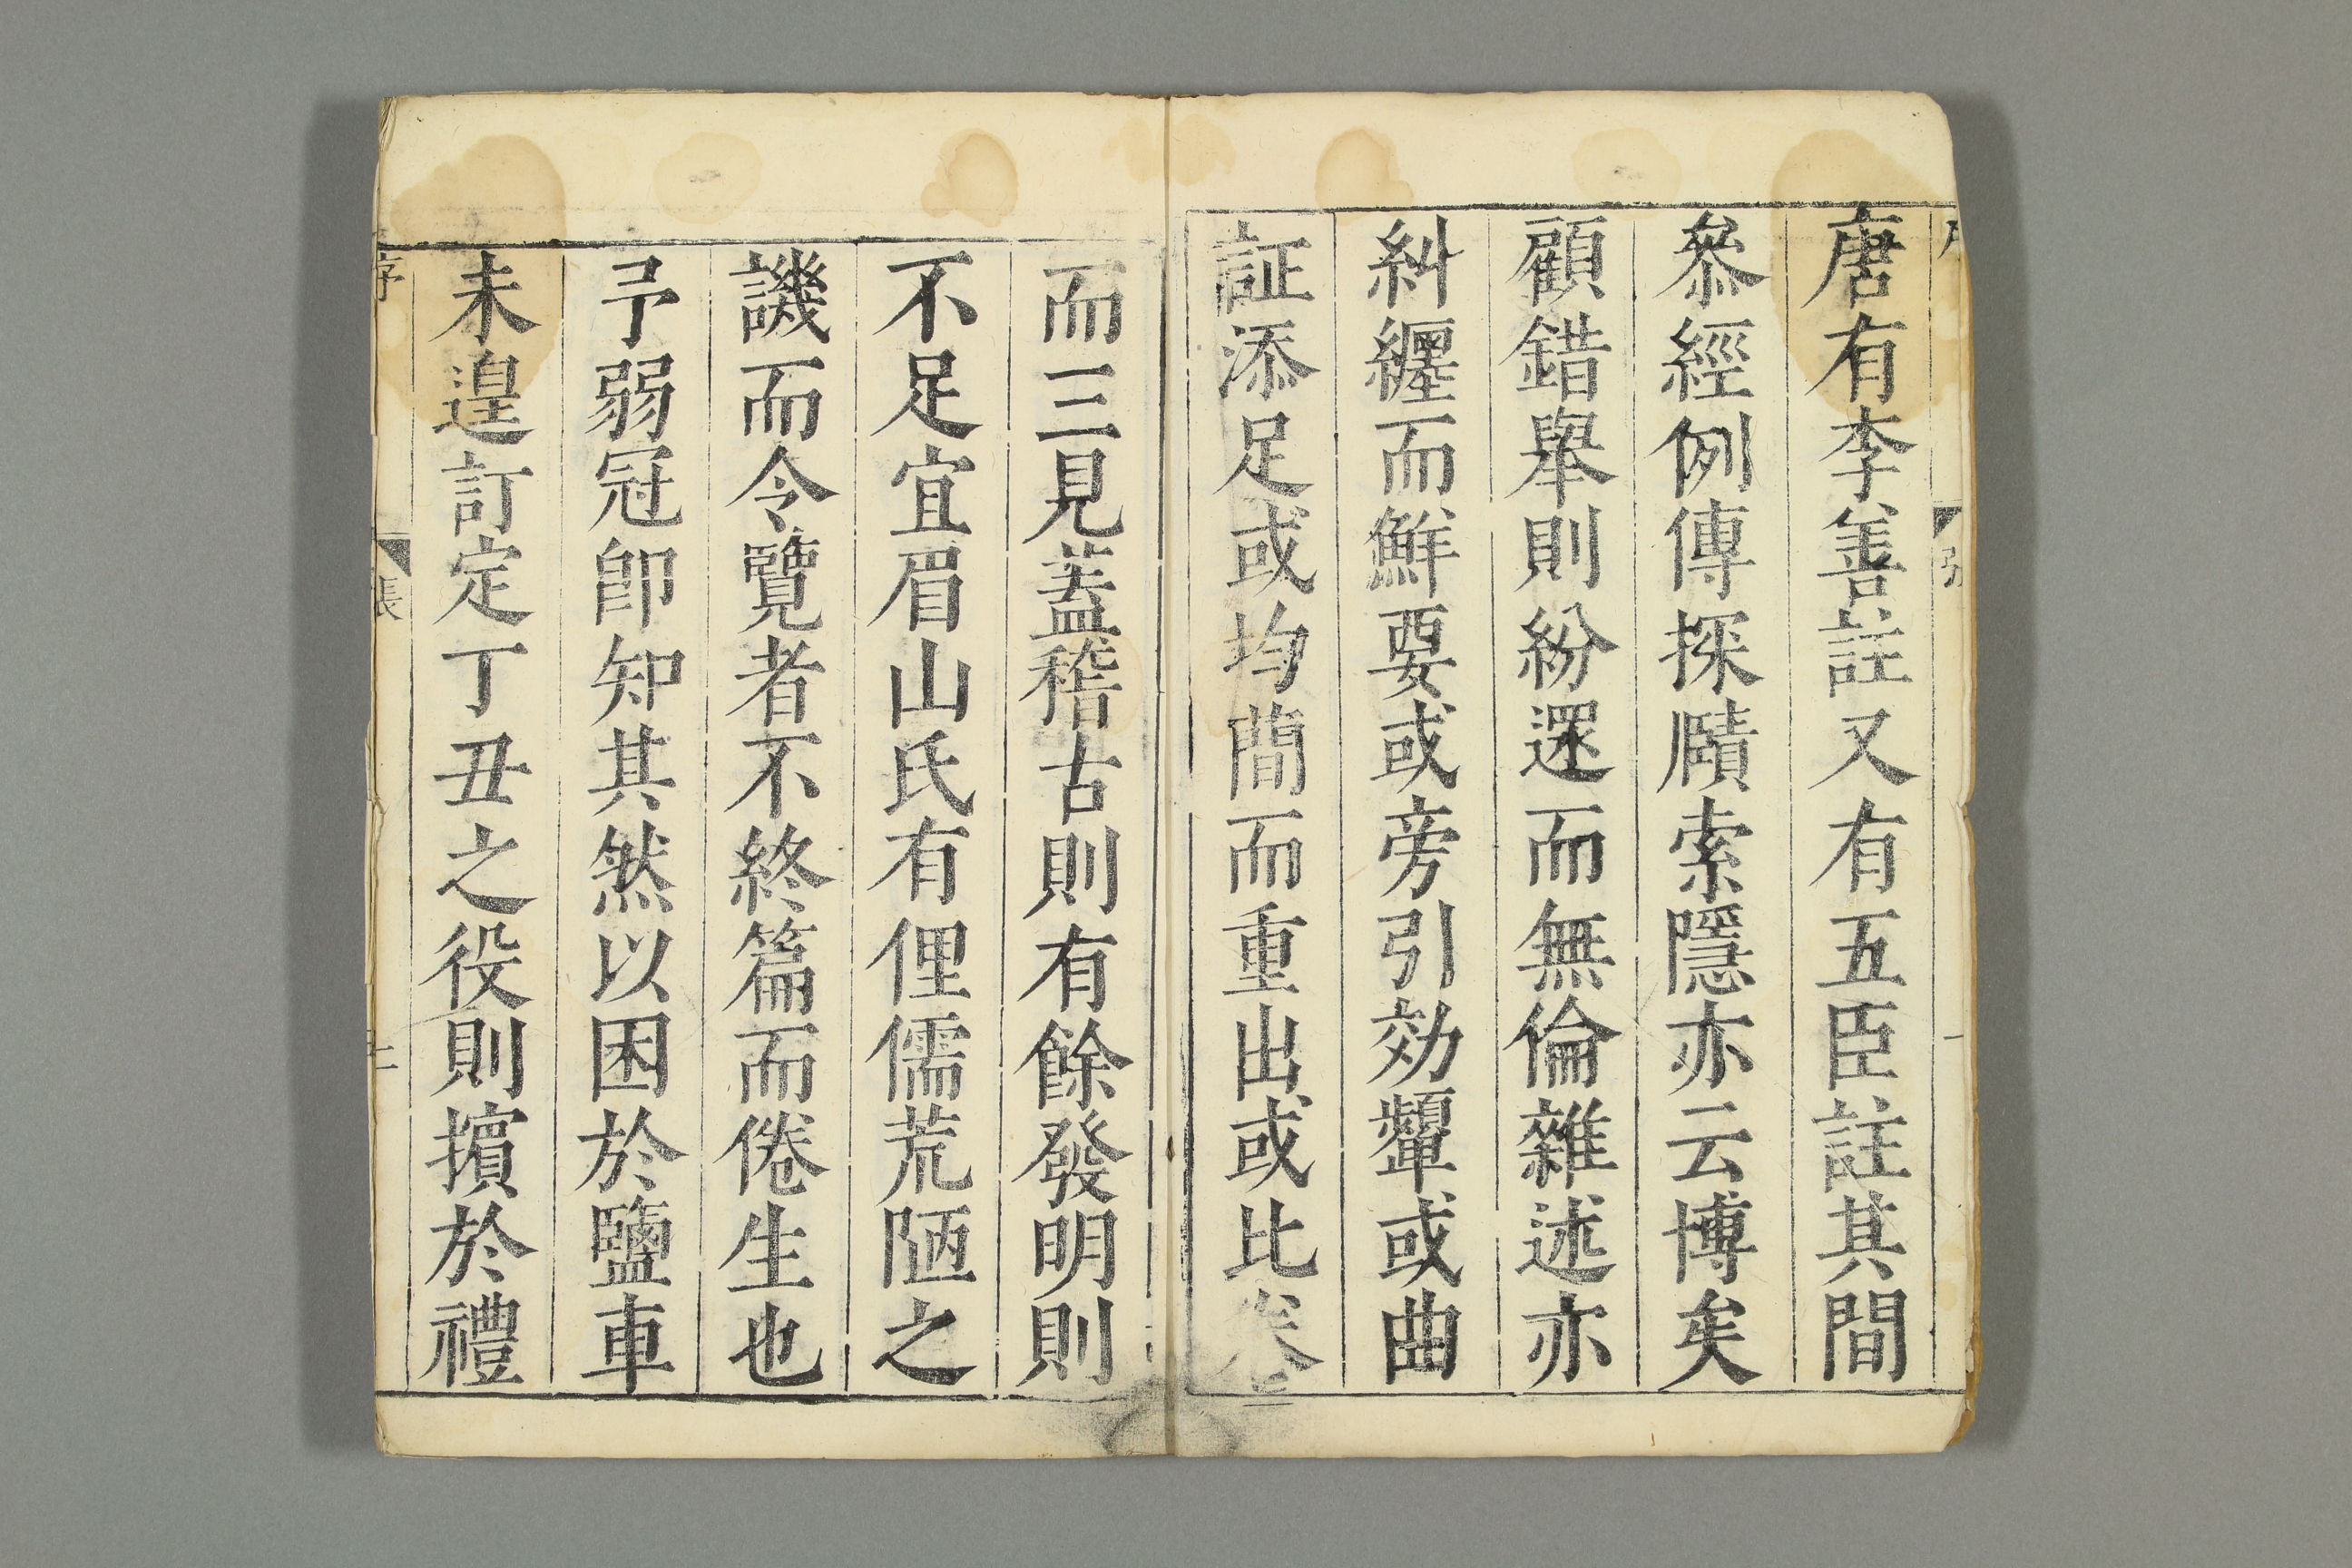 唐有李善註又有五臣註其間
叅經例傳探賾索隱亦云博矣
顧錯舉則紛還而無倫雜述亦
糾纒而鮮要或旁引効顰或曲
証添足或均蕳而重出或比
而三見蓋稽古則有餘發明則
不足宜眉山氏有俚儒荒陋之
譏而令覽者不終篇而倦生也
予弱冠即知其然以困於鹽車
未遑訂定丁丑之役則擯於禮
序
張
二